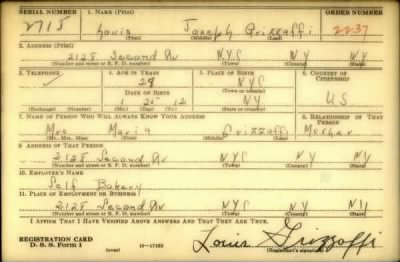 SERIAL NUMBER 1. NAME (Print) ORDER NUMBER
2715 Louis Joseph Grizzaffi 2237
(First) (Middle) (Last)
2. ADDRESS (Print)
2128 Second Av NYC NY NY
(Number and street or R. F. D. number) (Town) (County) (State)
3. TELEPHONE 4. AGE IN YEARS 5. PLACE OF BIRTH 6. COUNTRY OF CITIZENSHIP
28 NYC
DATE OF BIRTH (Town or county)
25 12 NY US
(Exchange) (Number) (Mo.) (Day) (Yr.) (State or country)
7. NAME OF PERSON WHO WILL ALWAYS KNOW YOUR ADDRESS 8. RELATIONSHIP OF THAT PERSON
Mrs Maria Grizzaffi Mother
(Mr., Mrs., Miss) (First) (Middle) (Last)
9. ADDRESS OF THAT PERSON
2128 Second Av NYC NY NY
(Number and street or R. F. D. number) (Town) (County) (State)
10. EMPLOYER'S NAME
Self Bakery
11. PLACE OF EMPLOYMENT OR BUSINESS
2128 Second Av NYC NY NY
(Number and street or R. F. D. number) (Town) (County) (State)
I AFFIRM THAT I HAVE VERIFIED ABOVE ANSWERS AND THAT THEY ARE TRUE.
REGISTRATION CARD
D. S. S. Form 1 (over) Louis Grizzaffi
(Registrant's signature)